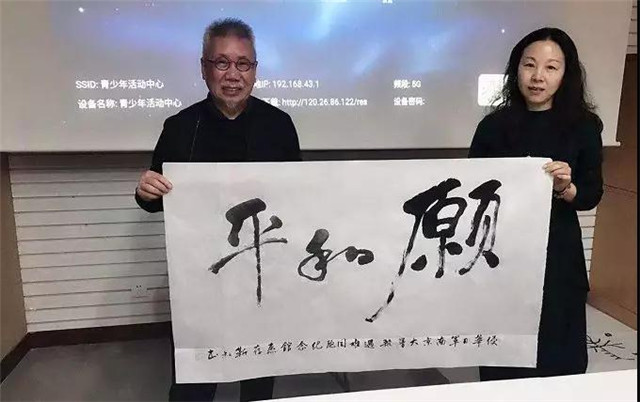 SSID: 青少年活动中心 IP: 192.168.43.1 频段: 5G
设备名称: 青少年活动中心 http://120.26.86.122/rea 设备密码:
願和平
侵華日軍南京大屠殺遇難同胞紀念館惠存